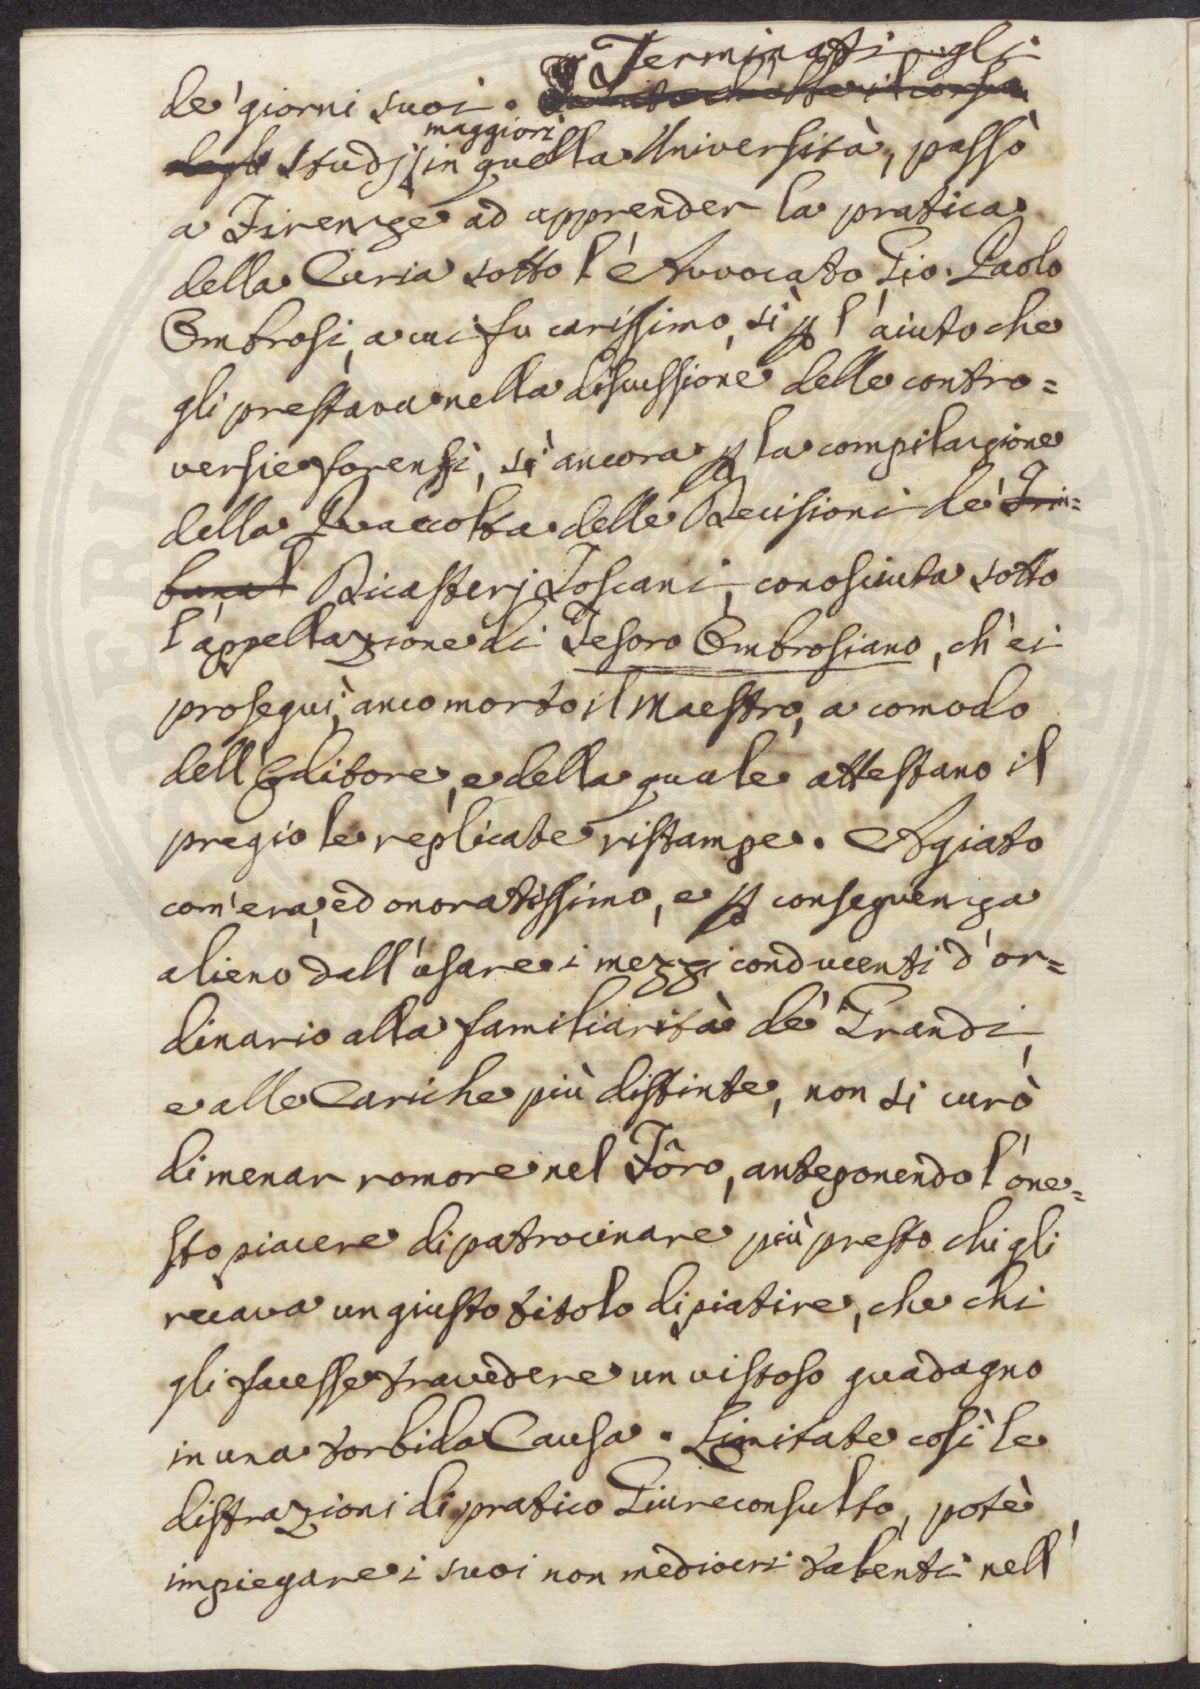 Terminati gli
de' giorni suoi.
maggiori
studj in quella Università, passò
a Firenze ad apprender la pratica
della Curia sotto l'Avvocato Gio. Paolo
Ombrosi, a cui fu carissimo, sì p l'aiuto che
gli prestava nella discussione delle contro=
versie forensi, sì ancora p la compilazione
della Raccolta delle Decisioni de' Tri=
bunal Dicasterj Toscani, conosciuta sotto
l'appellazione di Tesoro Ombrosiano, ch'ei
proseguì, anco morto il Maestro, a comodo
dell'Editore, e della quale attestano il
pregio le replicate ristampe. Agiato
com'era, ed onoratissimo, e p conseguenza
alieno dall'usare i mezzi conducenti d'or=
dinario alla familiarità de' Grandi,
e alle Cariche più distinte, non si curò
di menar romore nel Fôro, anteponendo l'one=
sto piacere di patrocinare più presto chi gli
recava un giusto titolo di piatire, che chi
gli facesse travedere un vistoso guadagno
in una torbida Causa. Limitate così le
distrazioni di pratico Giureconsulto, potè
impiegare i suoi non mediocri talenti nell'